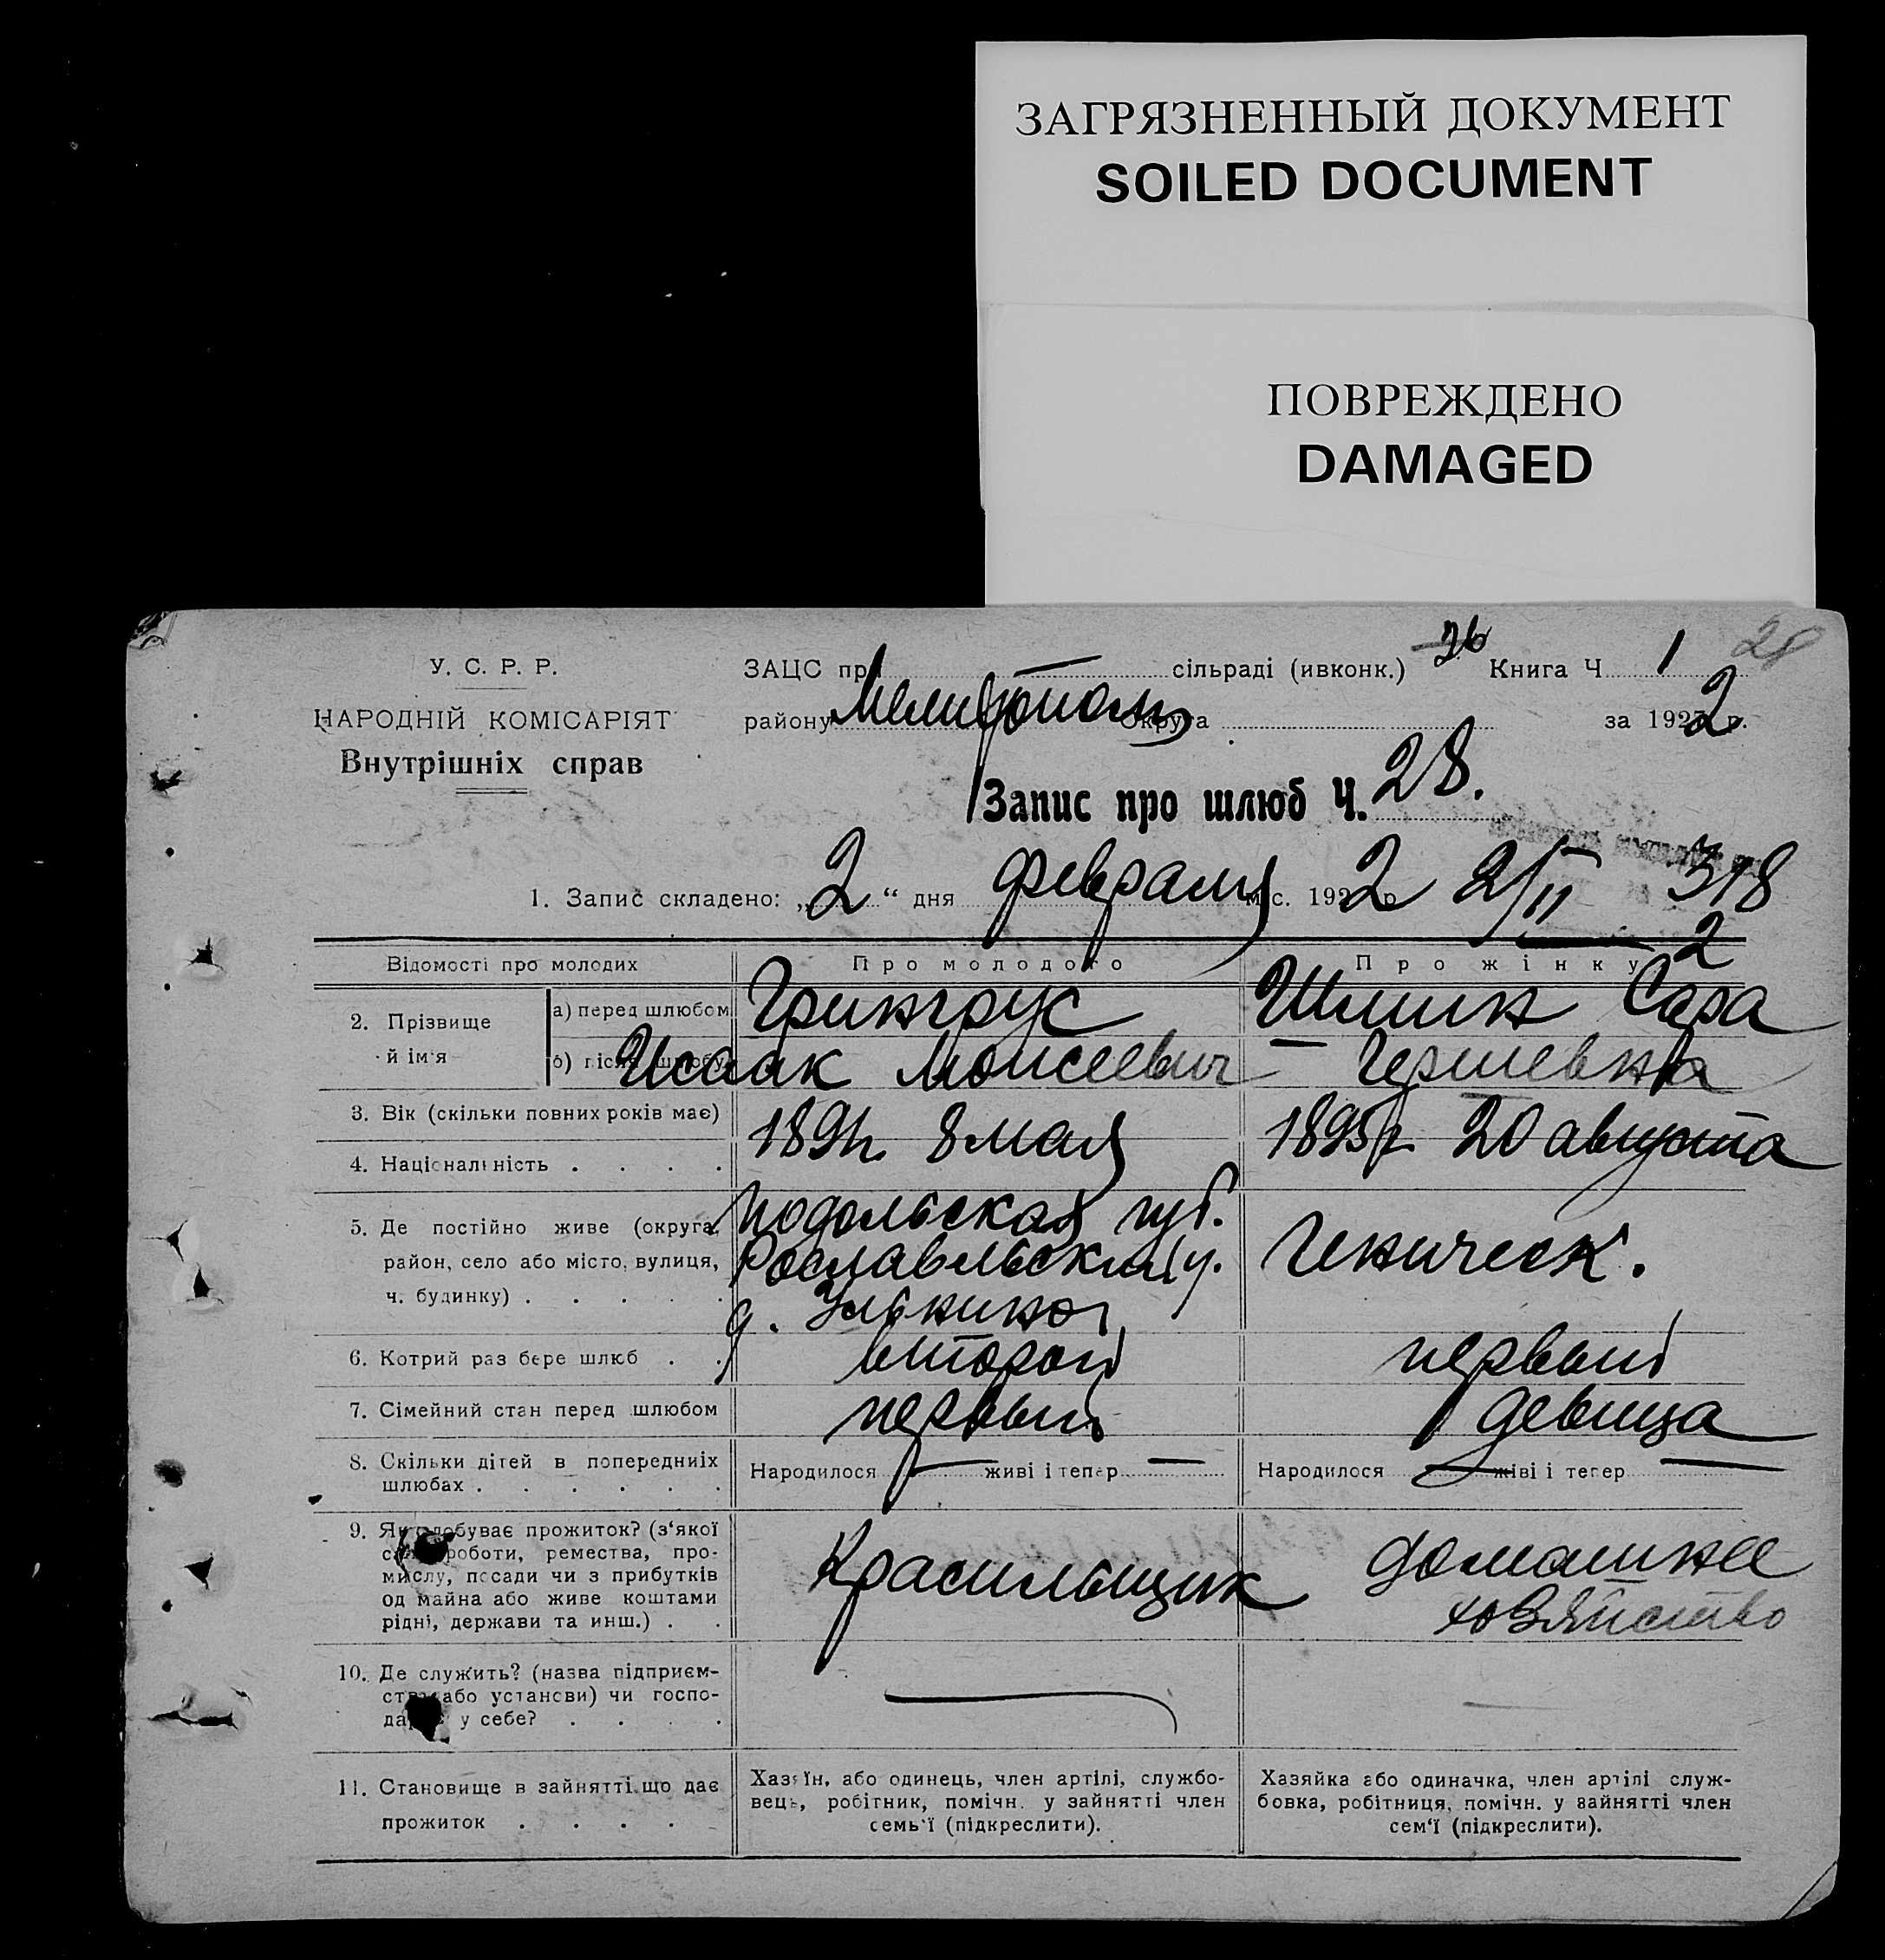 ЗАГРЯЗНЕННЫЙ ДОКУМЕНТ
SOILED DOCUMENT
ПОВРЕЖДЕНО
DAMAGED
28
У. С. Р. Р.
НАРОДНІЙ КОМІСАРІЯТ
Внутрішніх справ
ЗАЦС при — сільраді (ивконк.) 26 Книга Ч. 1
району Мелитополь округа за 1922 р.
Запис про шлюб Ч. 28.
1. Запис складено: „2“ дня февраля міс. 1922 р. 2/II 318
2
Відомості про молодих
Про молодого
Про жінку
2. Прізвище й ім'я
а) перед шлюбом
Грингрус
Шлиик Сара
б) після шлюбу
Исаак Моисеевич
— Гершевна
3. Вік (скільки повних років має)
1891г. 8 мая
1895г. 20 августа
4. Національність . . . .
5. Де постійно живе (округа,
район, село або місто, вулиця,
ч. будинку) . . . . .
Подольская губ.
Рославльский у.
Геническ.
6. Котрий раз бере шлюб . .
второй
первый
7. Сімейний стан перед шлюбом
первый
девица
8. Скільки дітей в попередниіх
шлюбах . . . . . .
Народилося — живі і тепер —
Народилося — живі і тепер —
9. Як здобуває прожиток? (з'якої
саме роботи, ремества, про-
мислу, посади чи з прибутків
од майна або живе коштами
рідні, держави та инш.) . .
Красильщик
домашнее
хозяйство
10. Де служить? (назва підприєм-
ства або установи) чи госпо-
дарює у себе? . . . .
—
—
11. Становище в зайнятті що дає
прожиток . . . .
Хазяїн, або одинець, член артілі, службо-
вець, робітник, помічн. у зайнятті член
семь'ї (підкреслити).
Хазяйка або одиначка, член артілі служ-
бовка, робітниця, помічн. у зайнятті член
сем'ї (підкреслити).